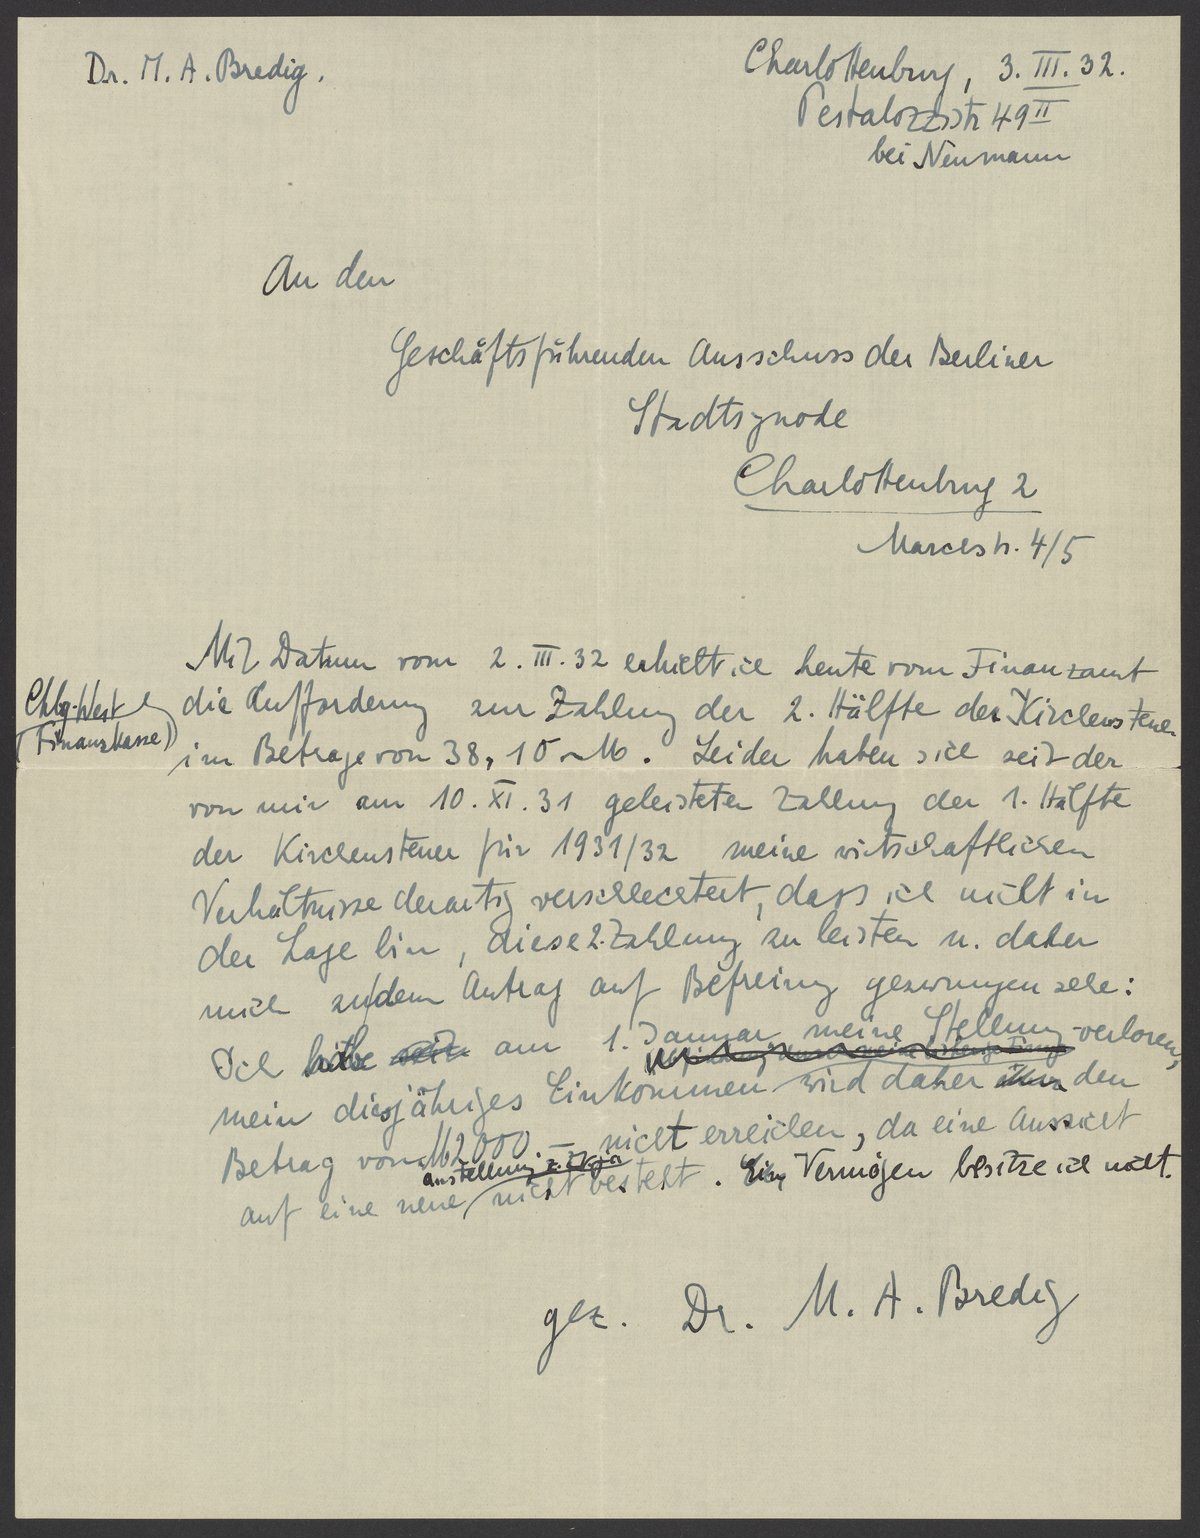 Dr. M. A. Bredig.
Charlottenburg, 3. III. 32.
Pestalozzistr 49 II
bei Neumann
An den
Geschäftsführenden Ausschuss der Berliner
Stadtsynode
Charlottenburg 2
Marchstr. 4/5
Mit Datum vom 2. III. 32 erhielt ich heute vom Finanzamt
Chlbg-West
(Finanzkasse)
die Aufforderung zur Zahlung der 2. Hälfte der Kirchensteuer
im Betrage von 38,10 M. Leider haben sich seit der
von mir am 10. XI. 31 geleisteten Zahlung der 1. Hälfte
der Kirchensteuer für 1931/32 meine wirtschaftlichen
Verhältnisse derartig verschlechtert, dass ich nicht in
der Lage bin, diese 2. Zahlung zu leisten u. daher
mich zu dem Antrag auf Befreiung gezwungen sehe:
Ich habe seit am 1. Januar meine Stellung verloren,
mein diesjähriges Einkommen wird daher den
Betrag von M 2000.— nicht erreichen, da eine Aussicht
anstellung
auf eine neue nicht besteht. Ein Vermögen besitze ich nicht.
gez. Dr. M. A. Bredig